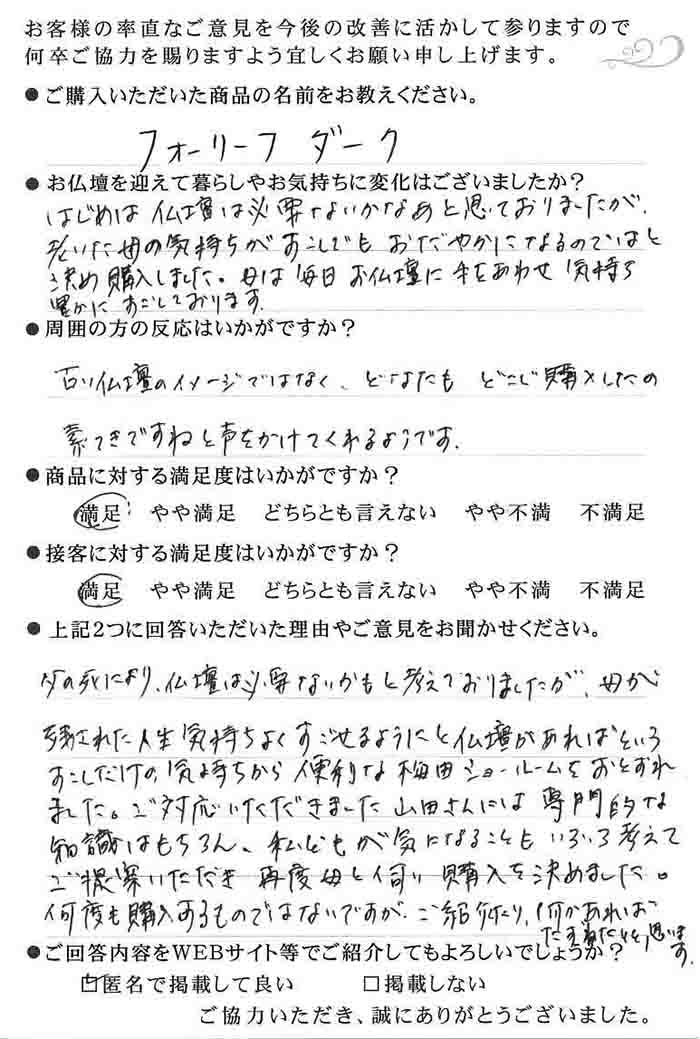 お客様の率直なご意見を今後の改善に活かして参りますので
何卒ご協力を賜りますよう宜しくお願い申し上げます。
●ご購入いただいた商品の名前をお教えください。
フォーリーフ ダーク
●お仏壇を迎えて暮らしやお気持ちに変化はございましたか?
はじめは仏壇は必要ないかなあと思っておりましたが、
老いた母の気持ちがすこしでもおだやかになるのではと
決め購入しました。母は毎日お仏壇に手をあわせ気持ち
豊かにすごしております。
●周囲の方の反応はいかがですか?
古い仏壇のイメージではなく、どなたもどこで購入したの
素てきですねと声をかけてくれるようです。
●商品に対する満足度はいかがですか?
満足 やや満足 どちらとも言えない やや不満 不満足
●接客に対する満足度はいかがですか?
満足 やや満足 どちらとも言えない やや不満 不満足
●上記2つに回答いただいた理由やご意見をお聞かせください。
父の死により、仏壇は必要ないかもと考えておりましたが、母が
残された人生気持ちよくすごせるようにと仏壇があればという
すこしだけの気持ちから便利な梅田ショールームをおとずれ
ました。ご対応いただきました山田さんには専門的な
知識はもちろん、私どもが気になることもいろいろ考えて
ご提案いただき再度母と伺い購入を決めました。
何度も購入するものではないですが、ご紹介したり、何かあれば
おたずねしたいと思います。
●ご回答内容をWEBサイト等でご紹介してもよろしいでしょうか?
☑匿名で掲載して良い □掲載しない
ご協力いただき、誠にありがとうございました。